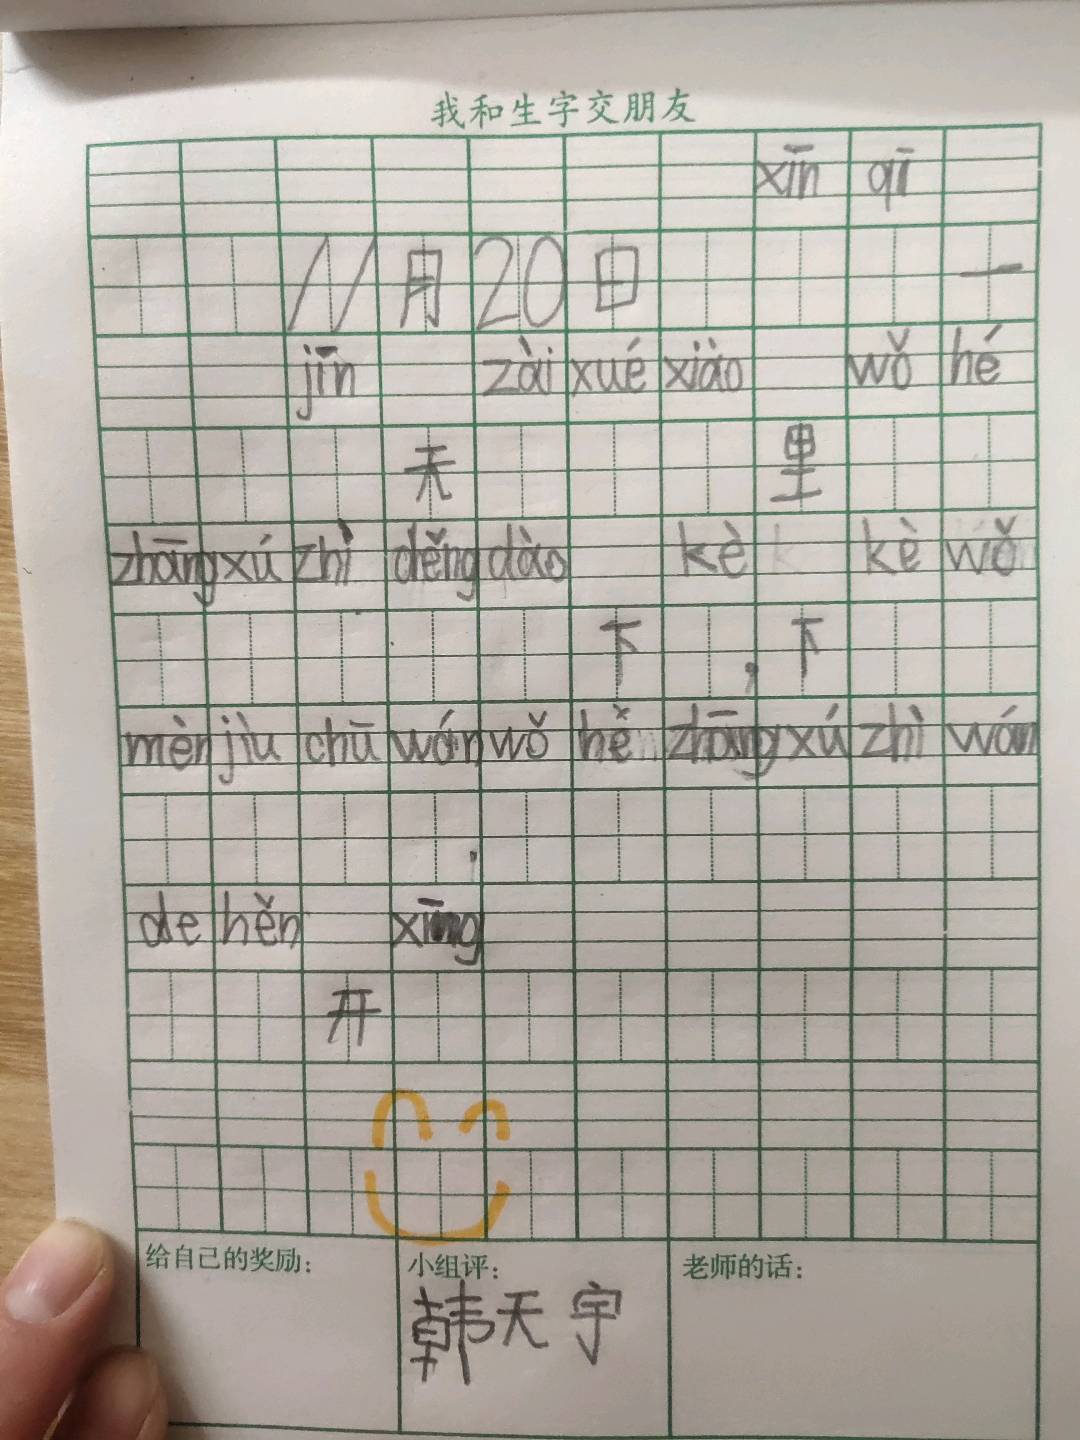 我和生字交朋友
xīn qī
11月20日 一
jīn zài xué xiào wǒ hé
天 里
zhāng xú zhì děng dào kè k kè wǒ
下 , 下
mèn jiù chū wán wǒ hě zhāng xú zhì wán
,
de hěn xīng
开
给自己的奖励: 小组评: 老师的话:
韩天宇